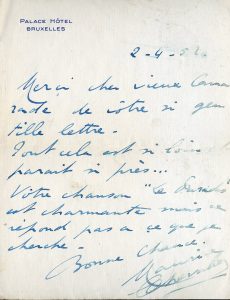 PALACE HÔTEL
BRUXELLES
2-4-5
Merci cher vieux Cama
rade de vôtre si gen
tille lettre.
Tout cela est si loin et
parait si près...
Votre chanson "le
est charmante mais ne
répond pas a ce que je
cherche.
Bonne chance.
Maurice
Chevalier